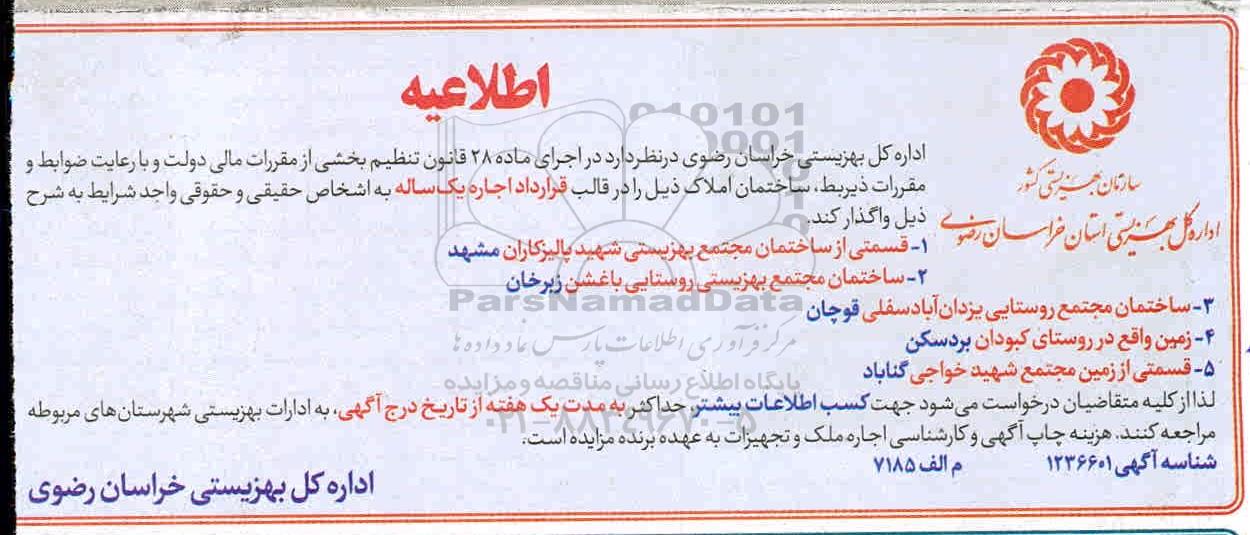 اطلاعیه
سازمان بهزیستی کشور
اداره کل بهزیستی استان خراسان رضوی
اداره کل بهزیستی خراسان رضوی درنظر دارد در اجرای ماده ۲۸ قانون تنظیم بخشی از مقررات مالی دولت و با رعایت ضوابط و
مقررات ذیربط، ساختمان املاک ذیل را در قالب قرارداد اجاره یک‌ساله به اشخاص حقیقی و حقوقی واجد شرایط به شرح
ذیل واگذار کند.
۱- قسمتی از ساختمان مجتمع بهزیستی شهید پالیزکاران مشهد
۲- ساختمان مجتمع بهزیستی روستایی باغشن زبرخان
۳- ساختمان مجتمع روستایی یزدان‌آباد سفلی قوچان
۴- زمین واقع در روستای کبودان بردسکن
۵- قسمتی از زمین مجتمع شهید خواجی گناباد
لذا از کلیه متقاضیان درخواست می‌شود جهت کسب اطلاعات بیشتر، حداکثر به مدت یک هفته از تاریخ درج آگهی، به ادارات بهزیستی شهرستان‌های مربوطه
مراجعه کنند. هزینه چاپ آگهی و کارشناسی اجاره ملک و تجهیزات به عهده برنده مزایده است.
شناسه آگهی ۱۲۳۶۶۰۱ م الف ۷۱۸۵
اداره کل بهزیستی خراسان رضوی
ParsNamadData
مرکز فرآوری اطلاعات پارس نماد داده ها
پایگاه اطلاع رسانی مناقصه و مزایده
۰۲۱-۸۸۳۴۹۶۷۰-۵